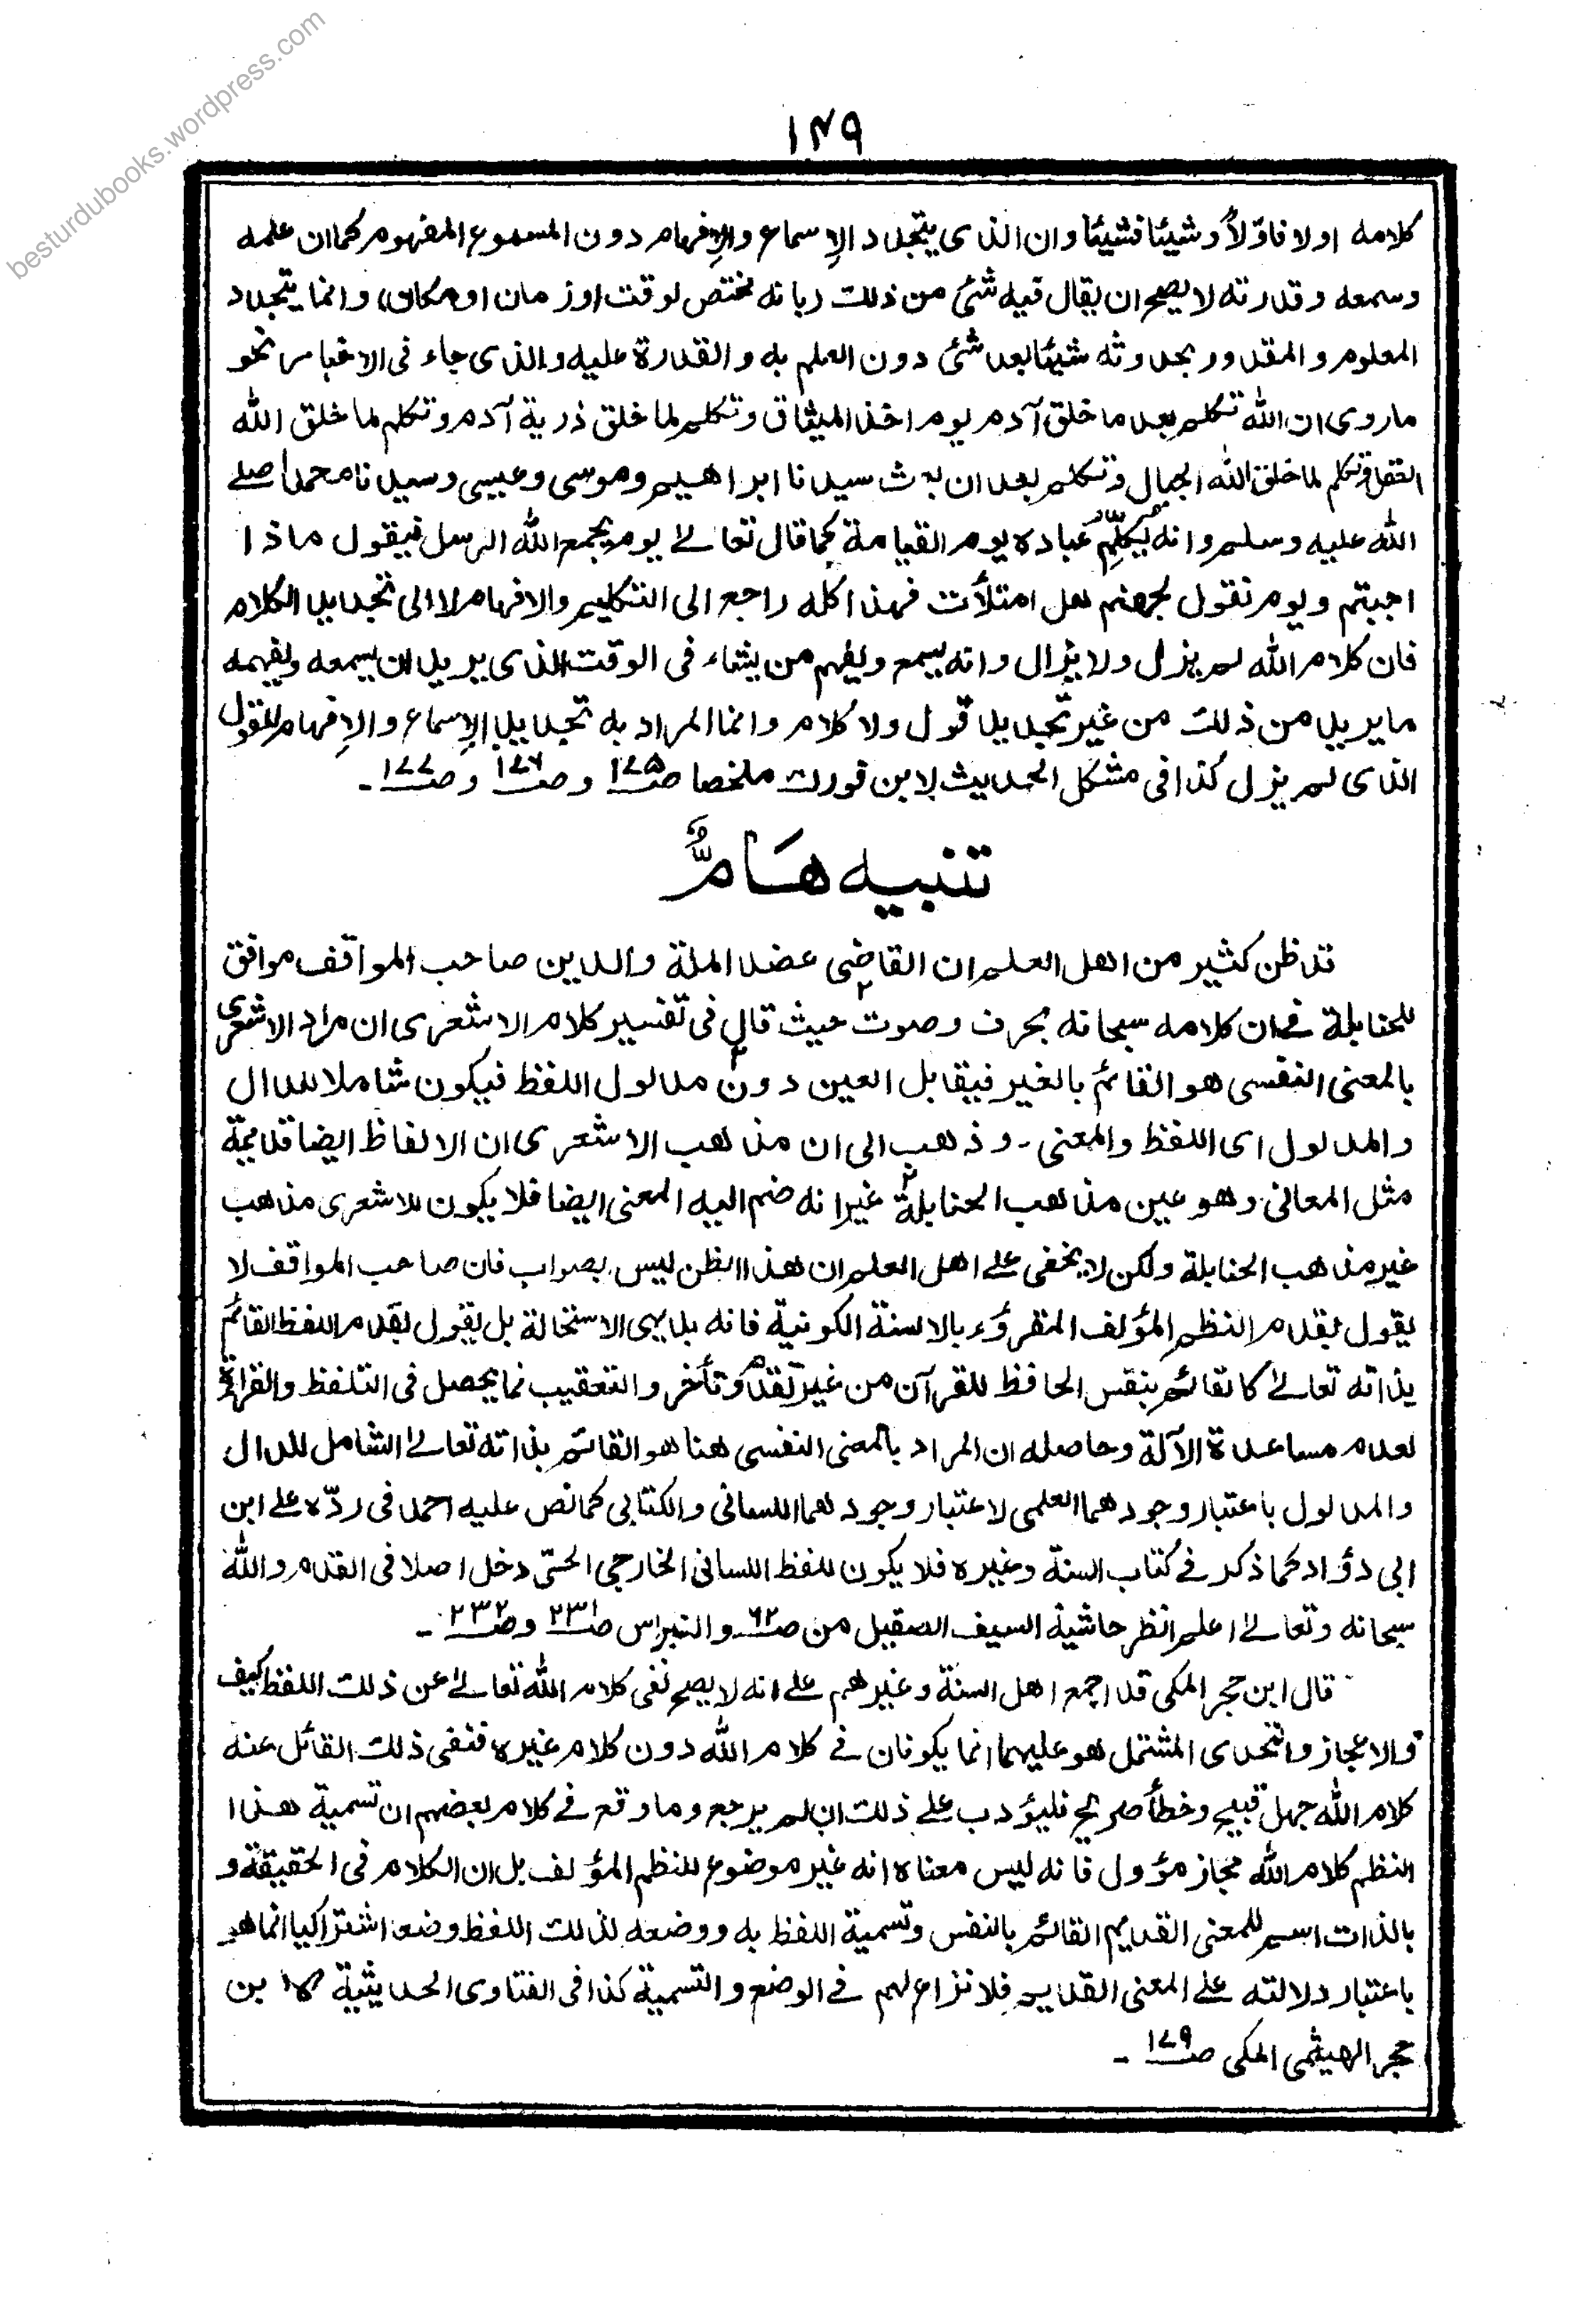 besturdubooks.wordpress.com
١٤٩
كلامه اولا فاوّلاً وشيئا فشيئا وان الذى يتجدد الإسماع والإفهام دون المسموع المفهوم كما ان علمه
وسمعه وقدرته لا يصح ان يقال فيه شئ من ذلك (بانه مختص لوقت او زمان او مكان) وانما يتجدد
المعلوم والمقدور بحدوثه شيئا بعد شئ دون العلم به والقدرة عليه والذى جاء فى الاخبار نحو
ما روى ان الله تكلم بعد ما خلق آدم يوم اخذ الميثاق وتكلم لما خلق ذرية آدم وتكلم لما خلق الله
العقل وتكلم لما خلق الله الجبال وتكلم بعد ان بعث سيدنا ابراهيم وموسى وعيسى وسيدنا محمدا صلى
الله عليه وسلم وانه يكلّم عباده يوم القيامة كما قال تعالى يوم يجمع الله الرسل فيقول ماذا
اجبتم ويوم نقول لجهنم هل امتلأت فهذا كله راجع الى التكليم والافهام لا الى تجديد الكلام
فان كلام الله لم يزل ولا يزال وانه يسمع ويفهم من يشاء فى الوقت الذى يريد ان يسمعه ويفهمه
ما يريد من ذلك من غير تجديد قول ولا كلام وانما المراد به تجديد الإسماع والإفهام للقول
الذى لم يزل كذا فى مشكل الحديث لابن فورك ملخصا صـ١٧٥ وصـ١٧٦ وصـ١٧٧ ـ
تنبيه هَامٌّ
قد ظن كثير من اهل العلم ان القاضى عضد الملة والدين صاحب المواقف موافق
للحنابلة فى ان كلامه سبحانه بحرف وصوت حيث قال فى تفسير كلام الاشعرى ان مراد الاشعرى
بالمعنى النفسى هو القائم بالغير فيقابل العين دون مدلول اللفظ فيكون شاملا للدال
والمدلول اى اللفظ والمعنى ـ وذهب الى ان مذهب الاشعرى ان الالفاظ ايضا قديمة
مثل المعانى وهو عين مذهب الحنابلة غير انه ضم اليه المعنى ايضا فلا يكون للاشعرى مذهب
غير مذهب الحنابلة ولكن لا يخفى على اهل العلم ان هذا الظن ليس بصواب فان صاحب المواقف لا
يقول بقدم النظم المؤلف المقروء بالالسنة الكونية فانه بديهى الاستحالة بل يقول بقدم اللفظ القائم
بذاته تعالى كالقائم بنفس الحافظ للقرآن من غير تقدّم وتأخر والتعقيب فما يحصل فى التلفظ والقراءة
لعدم مساعدة الآلة وحاصله ان المراد بالمعنى النفسى هنا هو القائم بذاته تعالى الشامل للدال
والمدلول باعتبار وجودهما العلمى لا عتبار وجودهما اللسانى والكتابى كما نص عليه احمد فى ردّه على ابن
ابى دؤاد كما ذكر فى كتاب السنة وغيره فلا يكون للفظ اللسانى الخارجى الحسّى دخل اصلا فى القدم والله
سبحانه وتعالى اعلم انظر حاشية السيف الصقيل من صـ٦٢ والنبراس صـ٢٣١ وصـ٢٣٢ ـ
قال ابن حجر المكى قد اجمع اهل السنة وغيرهم على انه لا يصح نفى كلام الله تعالى عن ذلك اللفظ كيف
والاعجاز والتحدى المشتمل هو عليهما انما يكونان فى كلام الله دون كلام غيره فنفى ذلك القائل عنه
كلام الله جهل قبيح وخطأ صريح فليؤدب على ذلك ان لم يرجع وما وقع فى كلام بعضهم ان تسمية هذا
النظم كلام الله مجاز مؤول فانه ليس معناه انه غير موضوع للنظم المؤلف بل ان الكلام فى الحقيقة و
بالذات اسم للمعنى القديم القائم بالنفس وتسمية اللفظ به ووضعه لذلك اللفظ وضعا اشتراكيا انما هو
باعتبار دلالته على المعنى القديم فلا نزاع لهم فى الوضع والتسمية كذا فى الفتاوى الحديثية لابن
حجر الهيثمى المكى صـ١٧٩ ـ